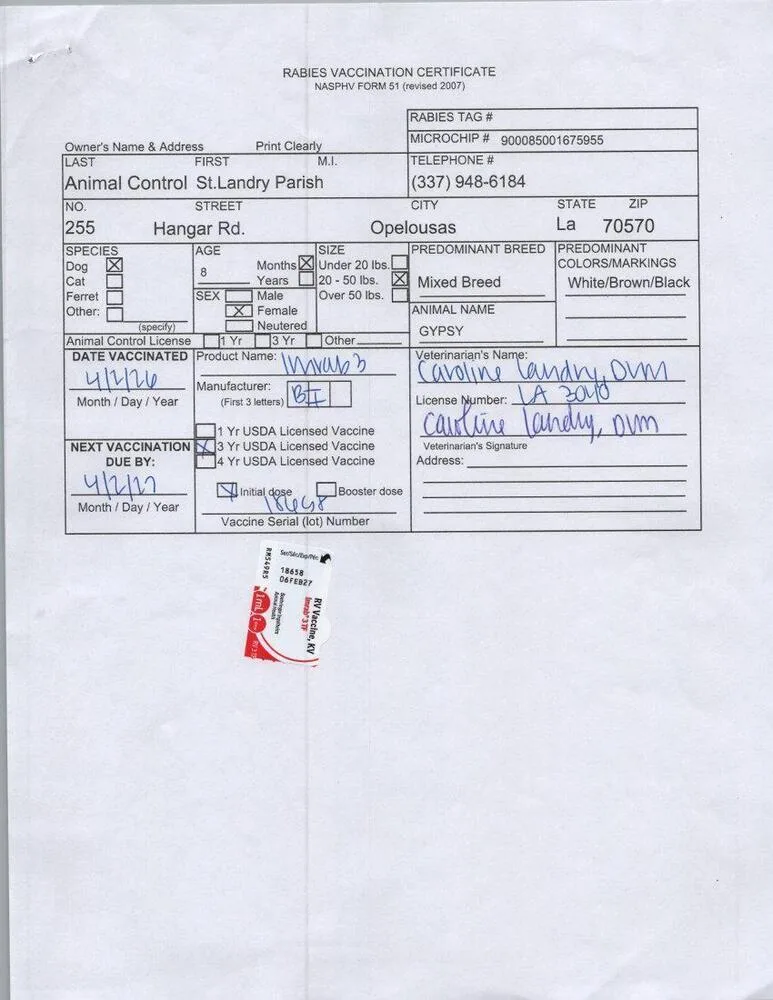 RABIES VACCINATION CERTIFICATE
NASPHV FORM 51 (revised 2007)
RABIES TAG #
MICROCHIP # 900085001675955
Owner's Name & Address Print Clearly
LAST FIRST M.I. TELEPHONE #
Animal Control St.Landry Parish (337) 948-6184
NO. STREET CITY STATE ZIP
255 Hangar Rd. Opelousas La 70570
SPECIES AGE SIZE PREDOMINANT BREED PREDOMINANT
COLORS/MARKINGS
Dog 8 Months Under 20 lbs.
Cat Years 20 - 50 lbs. Mixed Breed White/Brown/Black
Ferret SEX Male Over 50 lbs.
Other: Female ANIMAL NAME
(specify) Neutered GYPSY
Animal Control License 1 Yr 3 Yr Other
DATE VACCINATED Product Name: Imrab 3 Veterinarian's Name:
4/2/26 Caroline Landry, DVM
Month / Day / Year Manufacturer: BII License Number: LA 3040
(First 3 letters)
1 Yr USDA Licensed Vaccine Caroline Landry, DVM
NEXT VACCINATION 3 Yr USDA Licensed Vaccine Veterinarian's Signature
DUE BY: 4 Yr USDA Licensed Vaccine Address:
4/2/27 Initial dose Booster dose
18658
Month / Day / Year Vaccine Serial (lot) Number
Ser/Sér/Exp/Pér:
18658
06FEB27
RM549R5
RV Vaccine, KV
Imrab® 3 TF
Boehringer Ingelheim
Animal Health
1mL